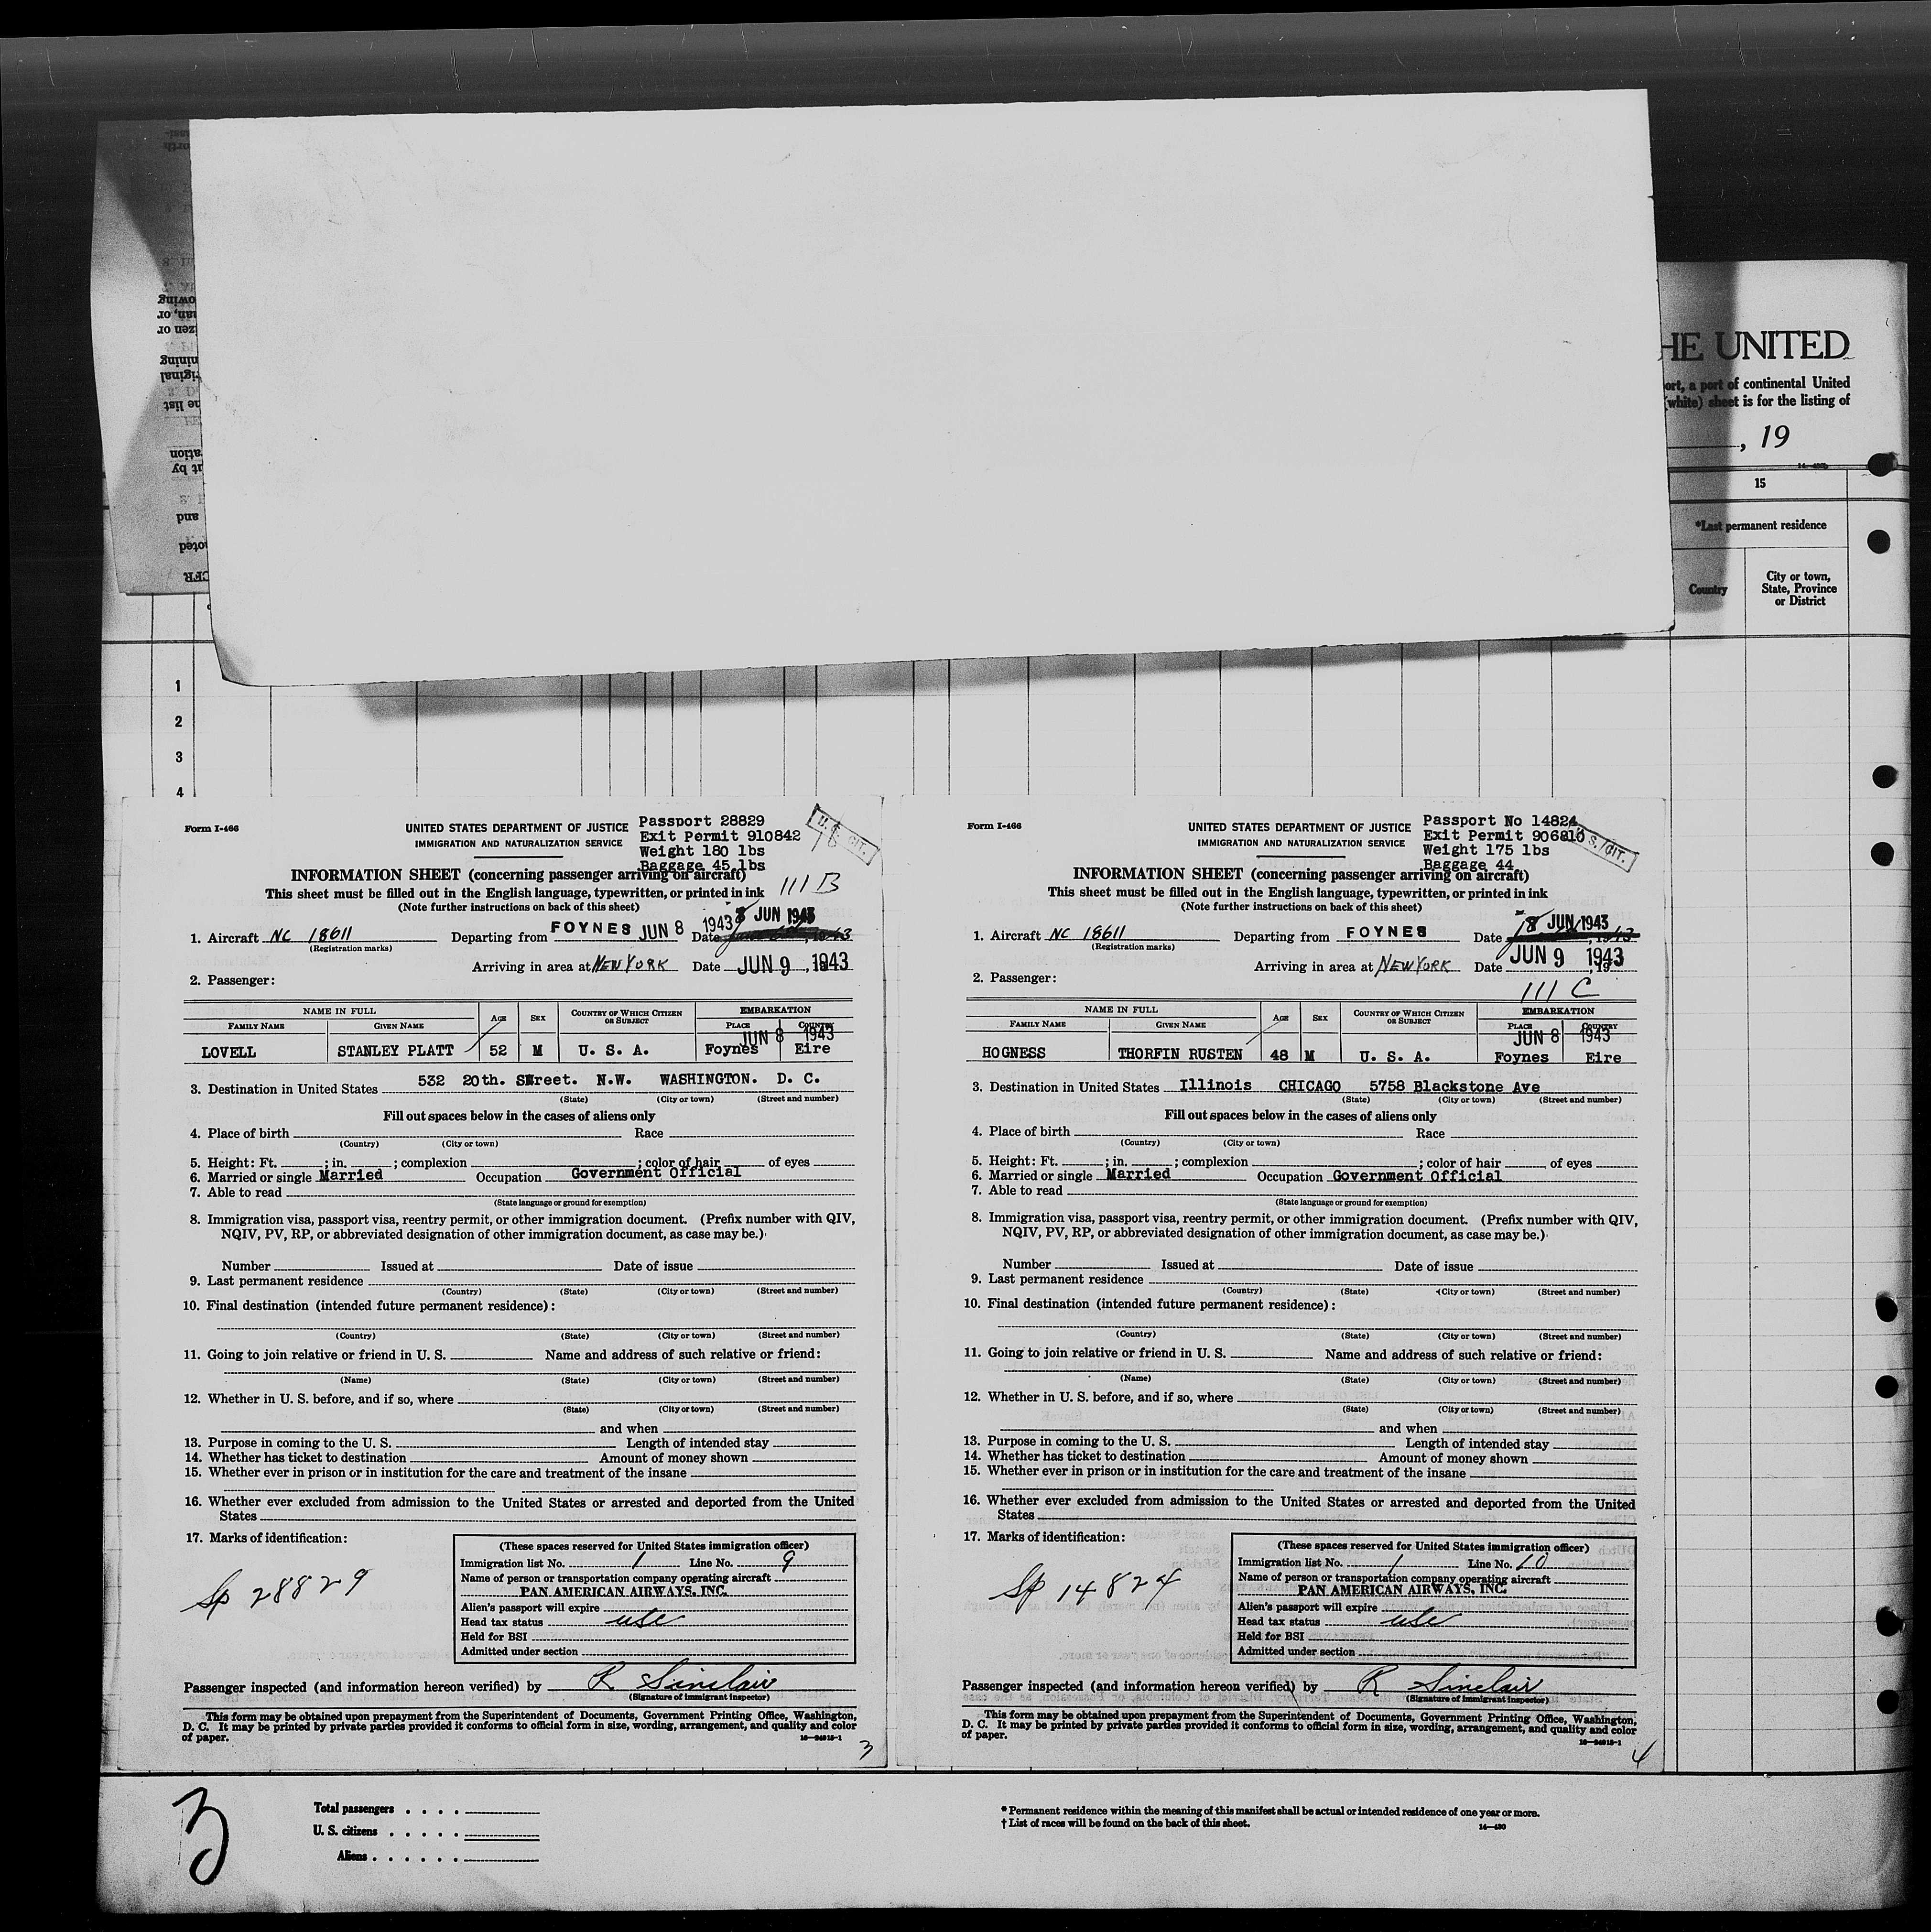 HE UNITED
ort, a port of continental United
(white) sheet is for the listing of
, 19
15
*Last permanent residence
Country
City or town,
State, Province
or District
1
2
3
4
Form I-466
UNITED STATES DEPARTMENT OF JUSTICE
IMMIGRATION AND NATURALIZATION SERVICE
Passport 28829
Exit Permit 910842
Weight 180 lbs
Baggage 45 lbs
U. S. CIT.
INFORMATION SHEET (concerning passenger arriving on aircraft)
111 B
This sheet must be filled out in the English language, typewritten, or printed in ink
(Note further instructions on back of this sheet)
1. Aircraft NC 18611 Departing from FOYNES JUN 8 1943 Date 8 JUN 1943
(Registration marks)
Arriving in area at NEW YORK Date JUN 9 1943
2. Passenger:
NAME IN FULL
FAMILY NAME GIVEN NAME AGE SEX COUNTRY OF WHICH CITIZEN OR SUBJECT EMBARKATION PLACE COUNTRY
JUN 8 1943
LOVELL STANLEY PLATT 52 M U. S. A. Foynes Eire
3. Destination in United States 532 20th. Street. N.W. WASHINGTON. D. C.
(State) (City or town) (Street and number)
Fill out spaces below in the cases of aliens only
4. Place of birth Race
(Country) (City or town)
5. Height: Ft. ; in. ; complexion ; color of hair of eyes
6. Married or single Married Occupation Government Official
7. Able to read
(State language or ground for exemption)
8. Immigration visa, passport visa, reentry permit, or other immigration document. (Prefix number with QIV,
NQIV, PV, RP, or abbreviated designation of other immigration document, as case may be.)
Number Issued at Date of issue
9. Last permanent residence
(Country) (State) (City or town) (Street and number)
10. Final destination (intended future permanent residence):
(Country) (State) (City or town) (Street and number)
11. Going to join relative or friend in U. S. Name and address of such relative or friend:
(Name) (State) (City or town) (Street and number)
12. Whether in U. S. before, and if so, where
(State) (City or town) (Street and number)
and when
13. Purpose in coming to the U. S. Length of intended stay
14. Whether has ticket to destination Amount of money shown
15. Whether ever in prison or in institution for the care and treatment of the insane
16. Whether ever excluded from admission to the United States or arrested and deported from the United
States
17. Marks of identification:
Sp 28829
(These spaces reserved for United States immigration officer)
Immigration list No. 1 Line No. 9
Name of person or transportation company operating aircraft
PAN AMERICAN AIRWAYS, INC.
Alien's passport will expire
Head tax status usc
Held for BSI
Admitted under section
Passenger inspected (and information hereon verified) by R Sinclair
(Signature of immigrant inspector)
This form may be obtained upon prepayment from the Superintendent of Documents, Government Printing Office, Washington,
D. C. It may be printed by private parties provided it conforms to official form in size, wording, arrangement, and quality and color
of paper.
16—24915-1
3
Form I-466
UNITED STATES DEPARTMENT OF JUSTICE
IMMIGRATION AND NATURALIZATION SERVICE
Passport No 14824
Exit Permit 906810
Weight 175 lbs
Baggage 44
U. S. CIT.
INFORMATION SHEET (concerning passenger arriving on aircraft)
This sheet must be filled out in the English language, typewritten, or printed in ink
(Note further instructions on back of this sheet)
1. Aircraft NC 18611 Departing from FOYNES Date 8 JUN 1943
(Registration marks)
Arriving in area at NEW YORK Date JUN 9 1943
2. Passenger:
111 C
NAME IN FULL
FAMILY NAME GIVEN NAME AGE SEX COUNTRY OF WHICH CITIZEN OR SUBJECT EMBARKATION PLACE COUNTRY
JUN 8 1943
HOGNESS THORFIN RUSTEN 48 M U. S. A. Foynes Eire
3. Destination in United States Illinois CHICAGO 5758 Blackstone Ave
(State) (City or town) (Street and number)
Fill out spaces below in the cases of aliens only
4. Place of birth Race
(Country) (City or town)
5. Height: Ft. ; in. ; complexion ; color of hair of eyes
6. Married or single Married Occupation Government Official
7. Able to read
(State language or ground for exemption)
8. Immigration visa, passport visa, reentry permit, or other immigration document. (Prefix number with QIV,
NQIV, PV, RP, or abbreviated designation of other immigration document, as case may be.)
Number Issued at Date of issue
9. Last permanent residence
(Country) (State) (City or town) (Street and number)
10. Final destination (intended future permanent residence):
(Country) (State) (City or town) (Street and number)
11. Going to join relative or friend in U. S. Name and address of such relative or friend:
(Name) (State) (City or town) (Street and number)
12. Whether in U. S. before, and if so, where
(State) (City or town) (Street and number)
and when
13. Purpose in coming to the U. S. Length of intended stay
14. Whether has ticket to destination Amount of money shown
15. Whether ever in prison or in institution for the care and treatment of the insane
16. Whether ever excluded from admission to the United States or arrested and deported from the United
States
17. Marks of identification:
Sp 14824
(These spaces reserved for United States immigration officer)
Immigration list No. 1 Line No. 10
Name of person or transportation company operating aircraft
PAN AMERICAN AIRWAYS, INC.
Alien's passport will expire
Head tax status usc
Held for BSI
Admitted under section
Passenger inspected (and information hereon verified) by R Sinclair
(Signature of immigrant inspector)
This form may be obtained upon prepayment from the Superintendent of Documents, Government Printing Office, Washington,
D. C. It may be printed by private parties provided it conforms to official form in size, wording, arrangement, and quality and color
of paper.
16—24915-1
4
3
Total passengers . . . .
U. S. citizens . . . . .
Aliens . . . . . .
* Permanent residence within the meaning of this manifest shall be actual or intended residence of one year or more.
† List of races will be found on the back of this sheet.
14—430